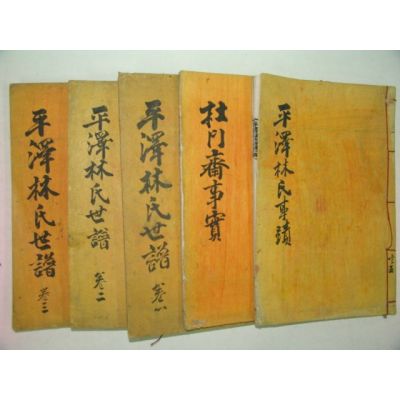 平澤林氏事蹟
杜門齋事實
平澤林氏世譜
卷一
平澤林氏世譜
卷二
平澤林氏世譜
卷三